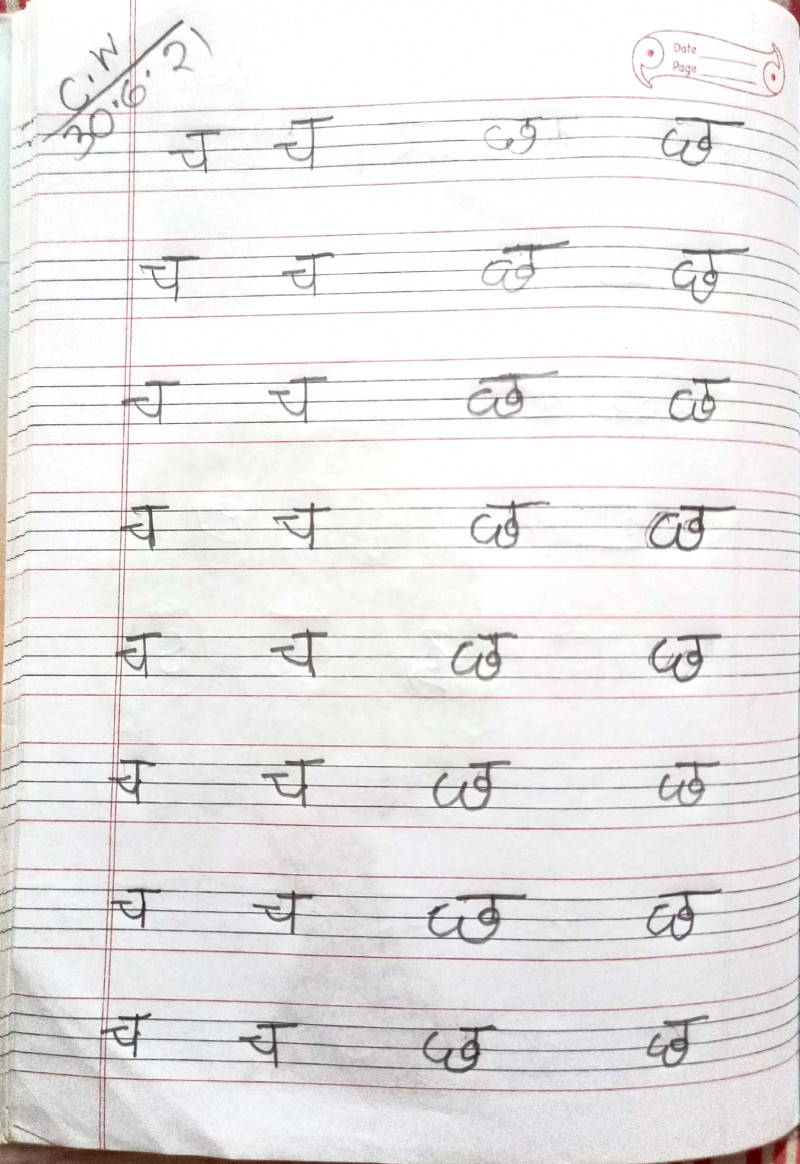 C.W
30.6.21
Date
Page
च च छ छ
च च छ छ
च च छ छ
च च छ छ
च च छ छ
च च छ छ
च च छ छ
च च छ छ